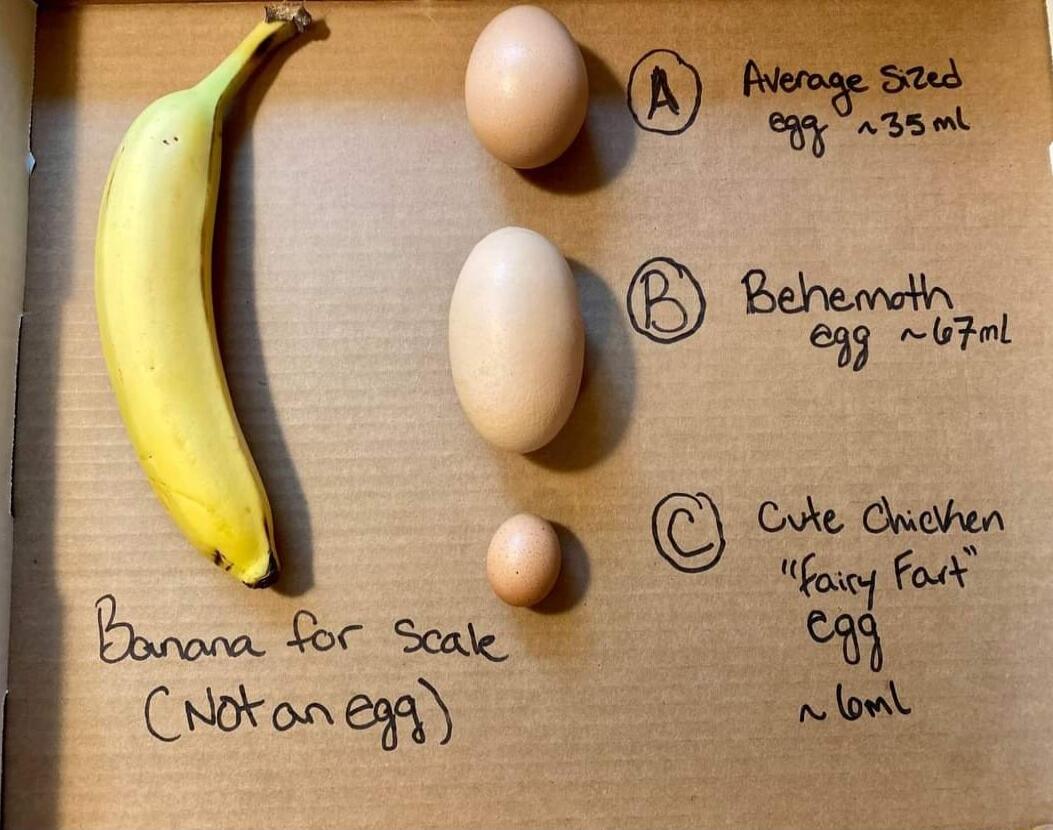 A
Average Sized
egg ~35 ml
B
Behemoth
egg ~67ml
C
Cute Chicken
"fairy Fart"
egg
~6ml
Banana for Scale
(Not an egg)